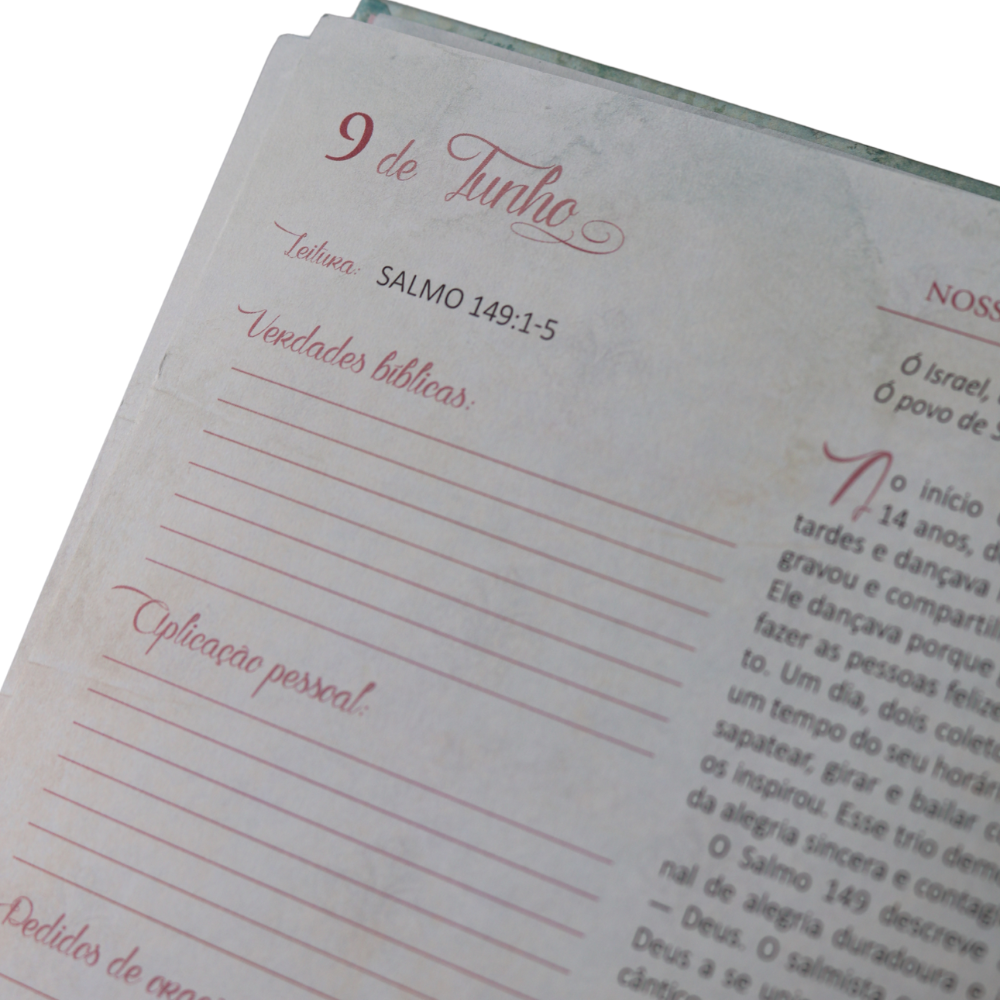 9 de Junho
Leitura: SALMO 149:1-5
Verdades bíblicas:
Aplicação pessoal:
Pedidos de
Ó Israel,
Ó povo de
No início
14 anos,
tardes e dançava
gravou e
Ele dançava porque
fazer as pessoas
to. Um dia, dois
um tempo do seu
sapatear, girar e bailar
os inspirou. Esse trio
da alegria sincera e
O Salmo 149 descreve
nal de alegria duradoura e
— Deus. O salmista
Deus a se